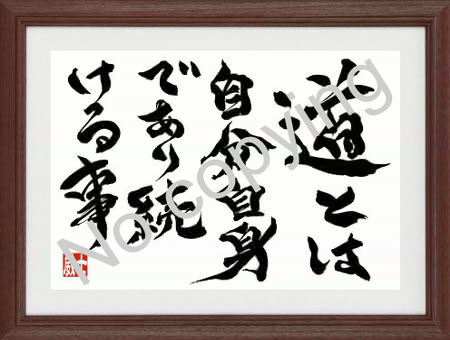 道とは
自分自身
であり続
ける事
No copying